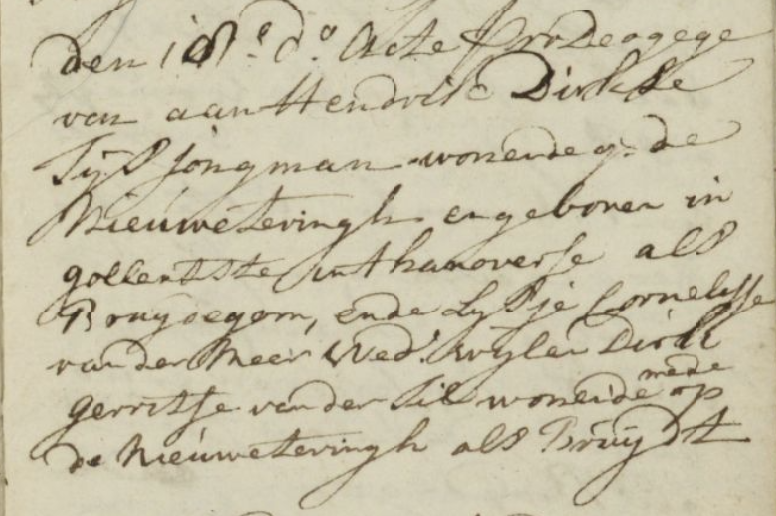 den 18e do Acte Pro deo gege
van aan Hendrik Dirkse
Tijs jongman wonende op de
Nieuweteringh en geboren in
int hanoverse als
Bruydegom, ende Lysje Cornelisse
van der Meer Wede. wylen Dirk
gerritse van der Sil wonende mede op
de Nieuweteringh als Bruydt